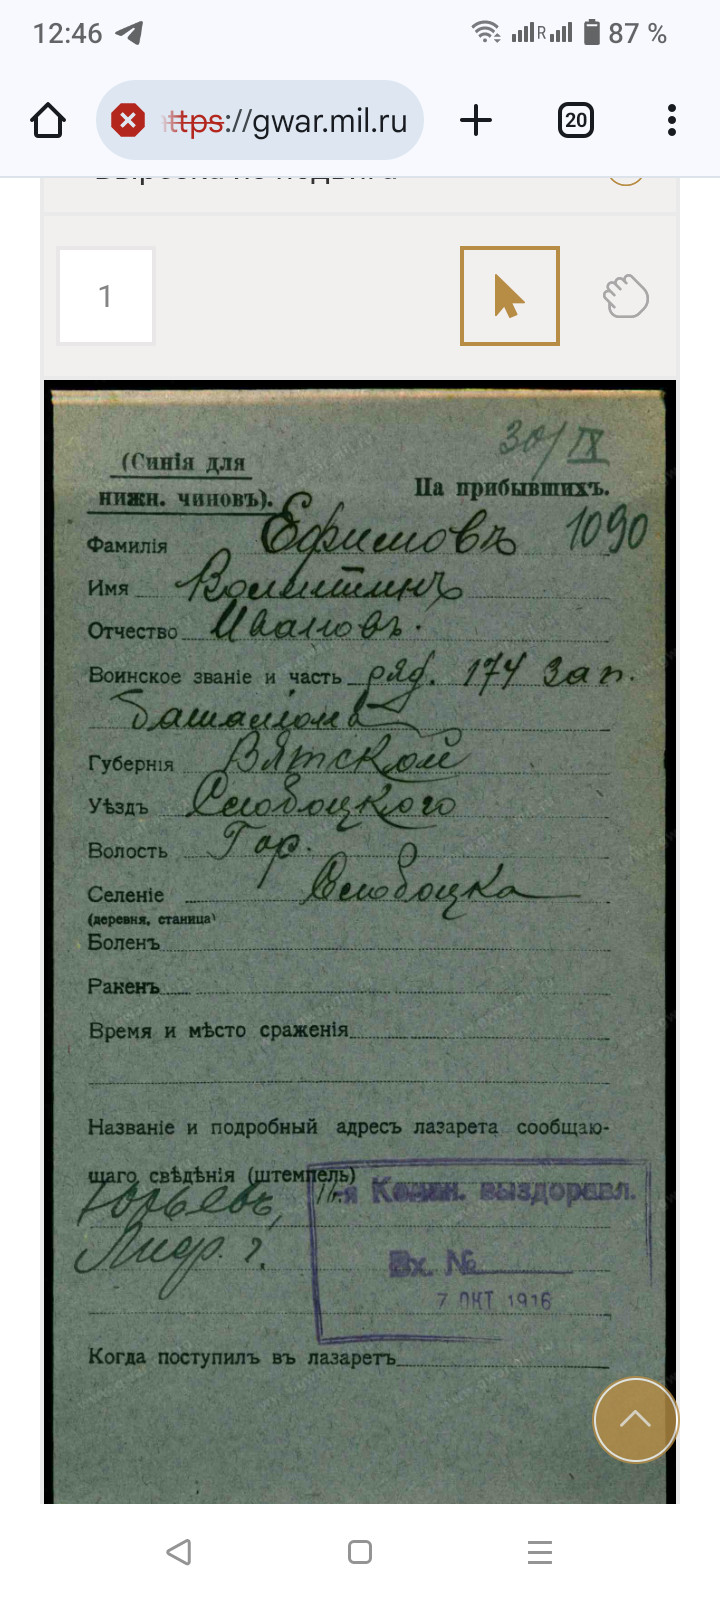 12:46
R
87 %
https://gwar.mil.ru
20
1
30/IX
(Синія для
нижн. чиновъ).
На прибывшихъ.
Фамилія Ефимовъ 1090
Имя Волентинъ
Отчество Ивановъ.
Воинское званіе и часть ряд. 174 зап.
баталіона
Губернія Вятской
Уѣздъ Слобоцкого
Волость Гор.
Селеніе Слобоцка
(деревня, станица)
Боленъ
Раненъ
Время и мѣсто сраженія
Названіе и подробный адресъ лазарета сообщаю-
щаго свѣдѣнія (штемпель)
Юрьевъ,
Лифр. г.
я Коман. выздоравл.
Вх. №
7 ОКТ 1916
Когда поступилъ въ лазаретъ